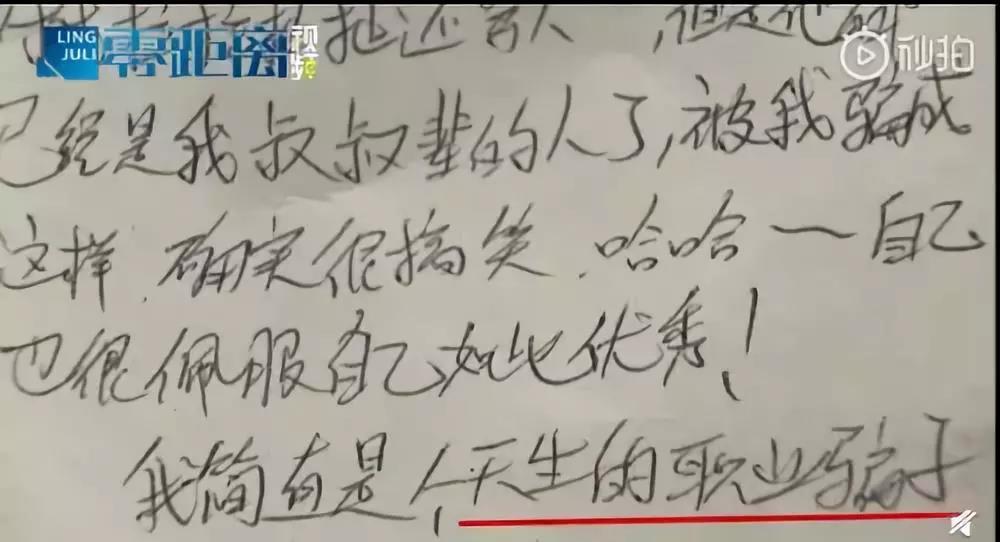 LING
JULI
零距离
视频
秒拍
还害人,但是他
已经是我叔叔辈的人了,被我骗成
这样,确实很搞笑,哈哈一自己
也很佩服自己如此优秀!
我简直是个天生的职业骗子